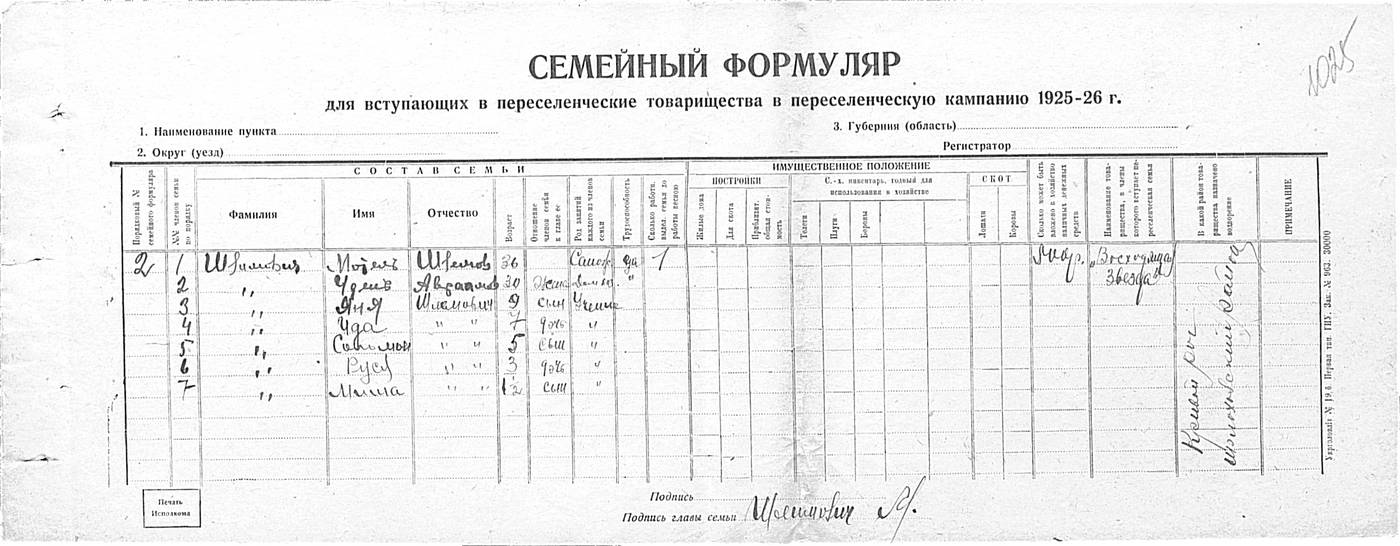 1025
СЕМЕЙНЫЙ ФОРМУЛЯР
для вступающих в переселенческие товарищества в переселенческую кампанию 1925-26 г.
1. Наименование пункта
3. Губерния (область)
2. Округ (уезд)
Регистратор
СОСТАВ СЕМЬИ
ИМУЩЕСТВЕННОЕ ПОЛОЖЕНИЕ
Порядковый № семейного формуляра
№№ членов семьи по порядку
Фамилия
Имя
Отчество
Возраст
Отношение членов семьи к главе ее
Род занятий каждого из членов семьи
Трудоспособность
Сколько работн. выдел. семья до работы весною
ПОСТРОЙКИ
Жилые дома
Для скота
Приблизит. общая стоимость
С.-х. инвентарь, годный для использования в хозяйстве
Телеги
Плуги
Бороны
СКОТ
Лошади
Коровы
Сколько может быть вложено в хозяйство наличных денежных средств
Наименование товарищества, в члены которого вступает переселенческая семья
В какой район товарищества назначено водворение
ПРИМЕЧАНИЕ
2 1 Мотель 36 да 1 „Восходящая
2 „ 30 "
Звезда"
3 „ Яня 9 сын
4 „ Ида " " 7 дочь "
5 „ Соломон " " 5 сын "
6 „ " " 3 дочь "
7 „ Миша " " 1½ сын "
Кривой рог
Укрглавліт № 19,6. Первая тип. ГПУ. Зак. № 963. 30000
Печать
Исполкома
Подпись
Подпись главы семьи М.